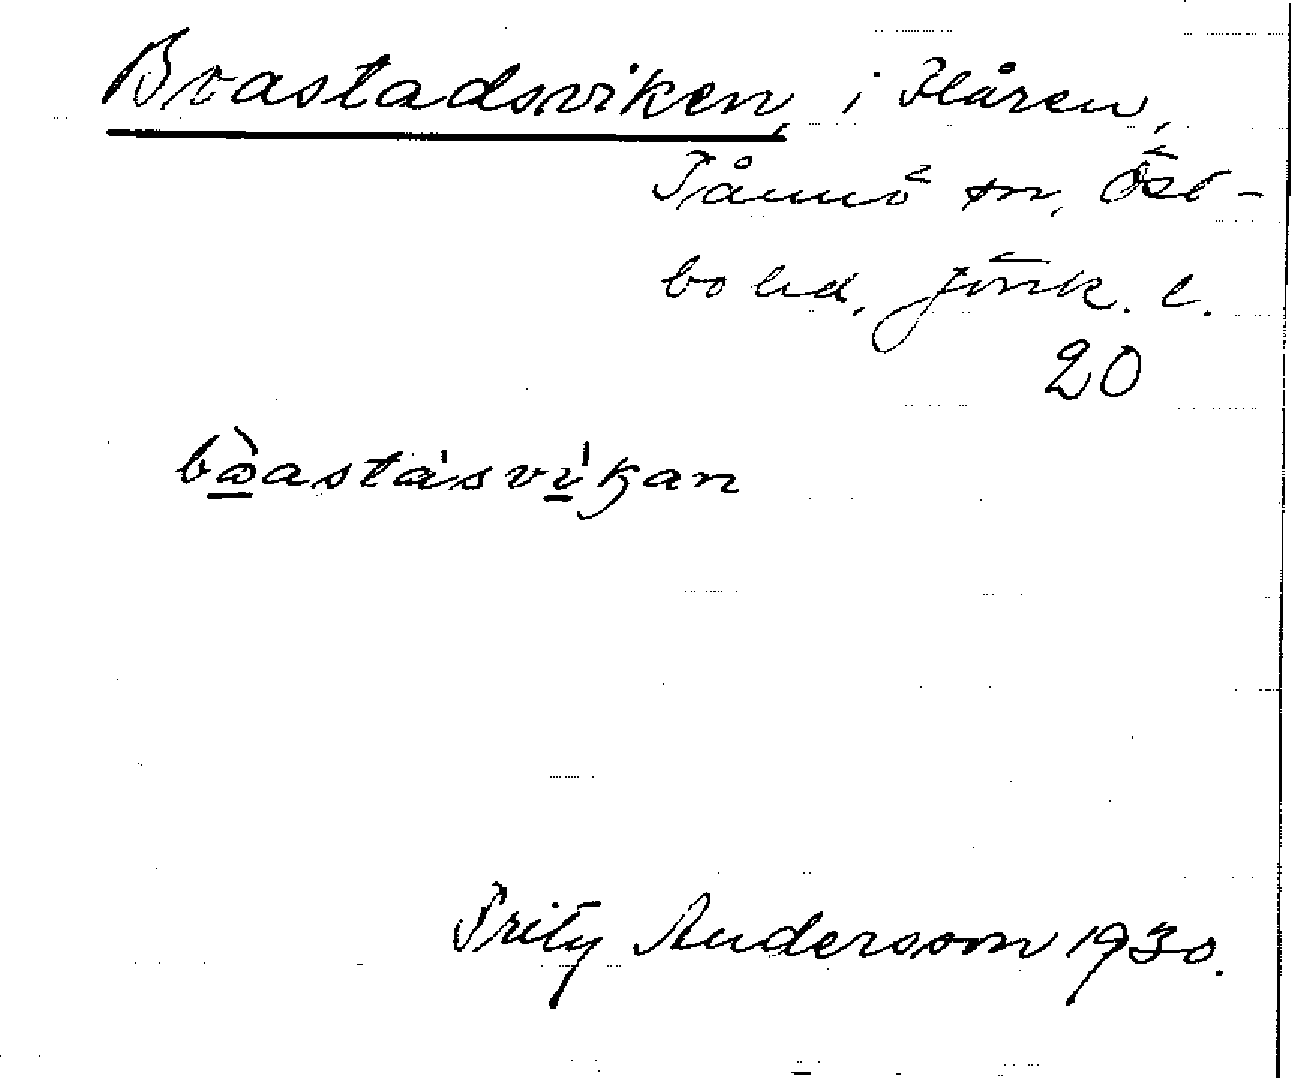 Brastadsviken, i Flåren,
Tånnö sn, Öst-
bo hd, Jönk. l.
20
bòastásvíkan
Fritz Andersson 1930.